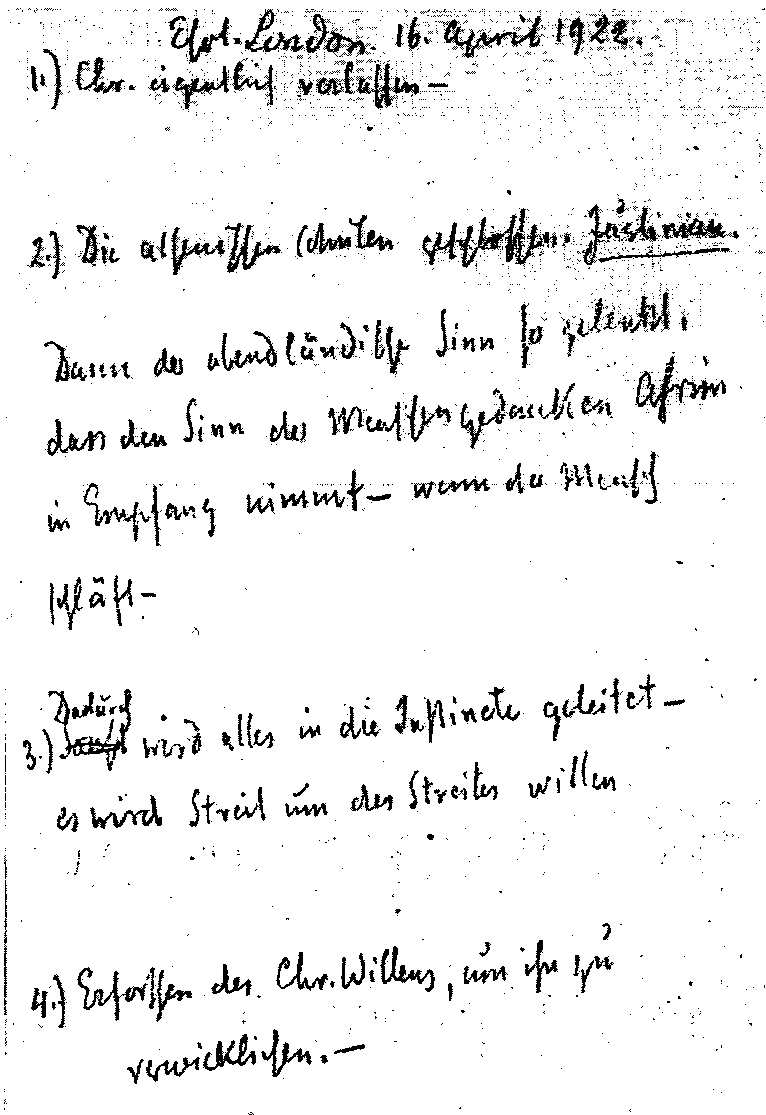 Esot. London 16. April 1922.
1.) Chr. eigentlich verlassen –
2.) Die athenischen Schulen geschlossen. Justinian.
Dann der abendländische Sinn so gelenkt,
dass den Sinn des Menschengedanken Ahrim
in Empfang nimmt – wenn der Mensch
schläft –
Dadurch
3.) wird alles in die Instincte geleitet –
es wird Streit um des Streites willen
4.) Erforschen des Chr. Willens, um ihn zu
verwirklichen. –